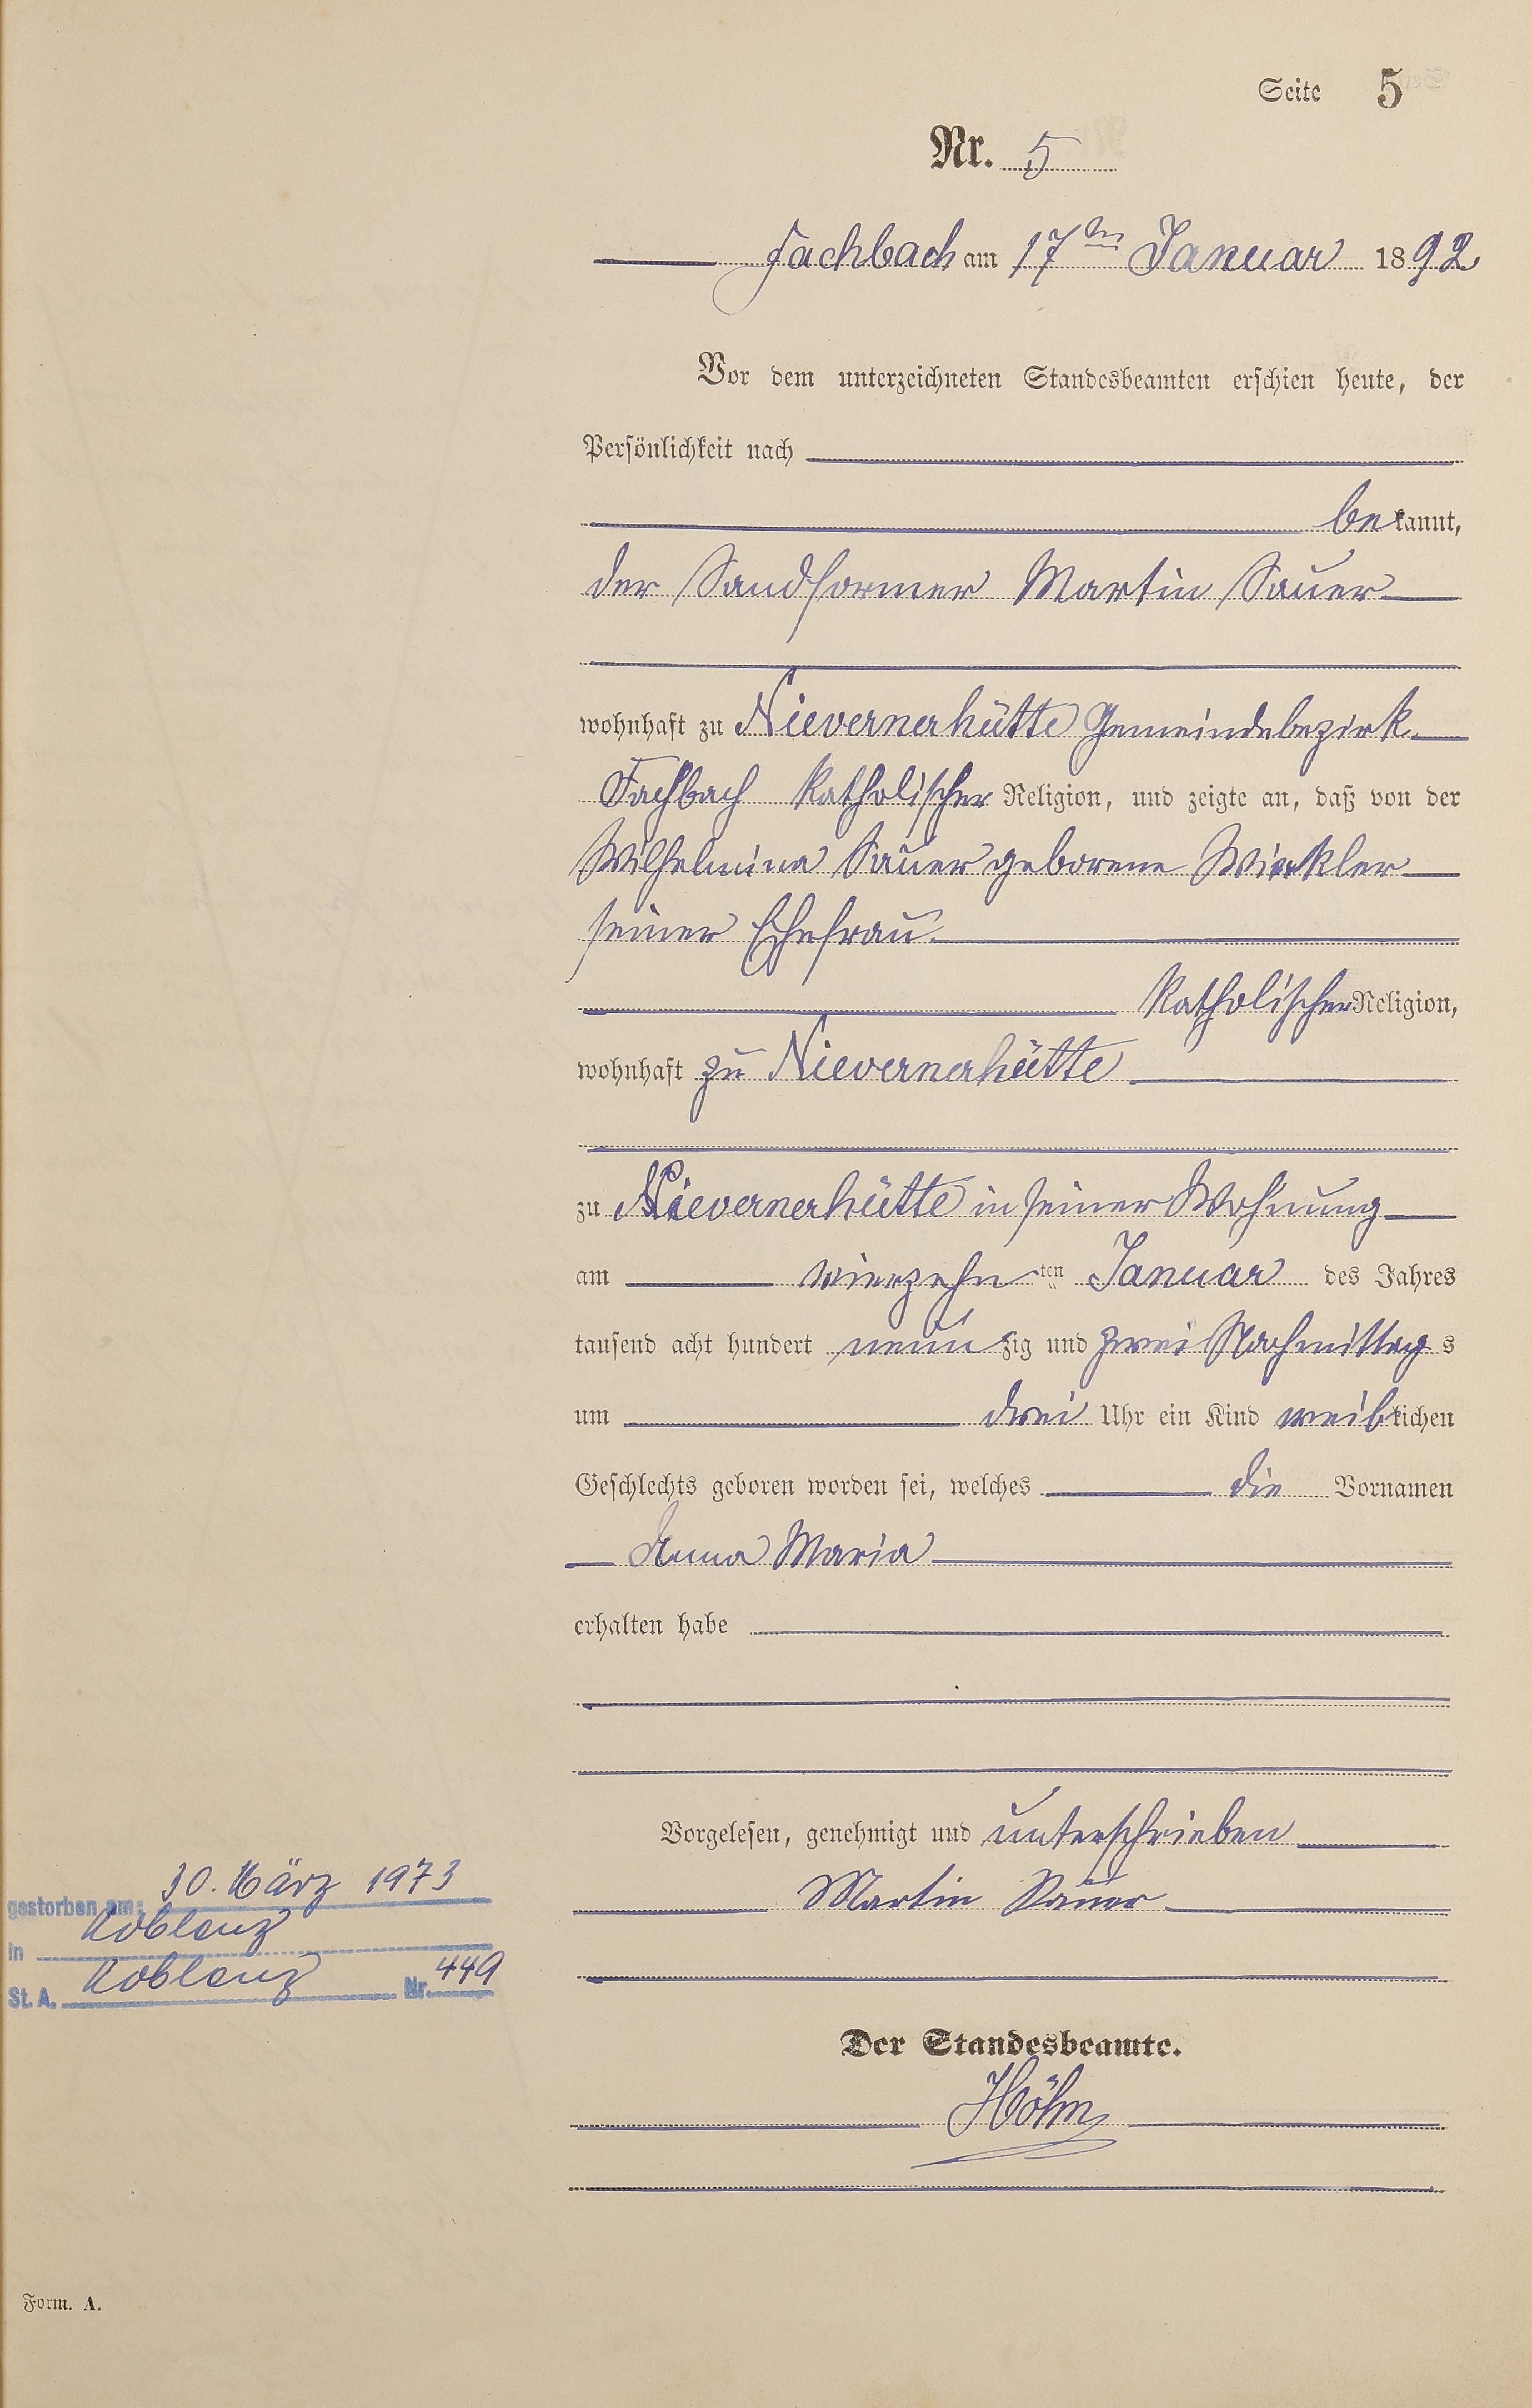 Seite 5
Nr. 5
Fachbach am 17ten Januar 1892
Vor dem unterzeichneten Standesbeamten erschien heute, der
Persönlichkeit nach
bekannt,
der Sandformer Martin Sauer
wohnhaft zu Nievernerhütte Gemeindebezirk
Fachbach katholischer Religion, und zeigte an, daß von der
Wilhelmina Sauer geborene Winkler
seiner Ehefrau
katholischer Religion,
wohnhaft zu Nievernerhütte
zu Nievernerhütte in seiner Wohnung
am vierzehnten Januar des Jahres
tausend acht hundert neunzig und zwei Nachmittags
um drei Uhr ein Kind weiblichen
Geschlechts geboren worden sei, welches die Vornamen
Anna Maria
erhalten habe
Vorgelesen, genehmigt und unterschrieben
Martin Sauer
gestorben am: 30. März 1973
in Koblenz
St. A. Koblenz Nr. 449
Der Standesbeamte.
Höhn
Form. A.